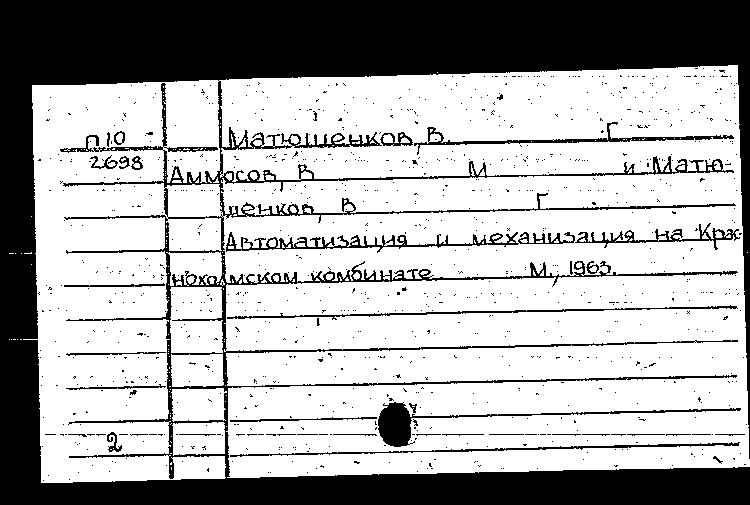 П10 Матюшенков, В. Г
2698
Аммосов, В М и Матю-
шенков, В Г
Автоматизация и механизация на Крас
нохолмском комбинате М., 1963.
2